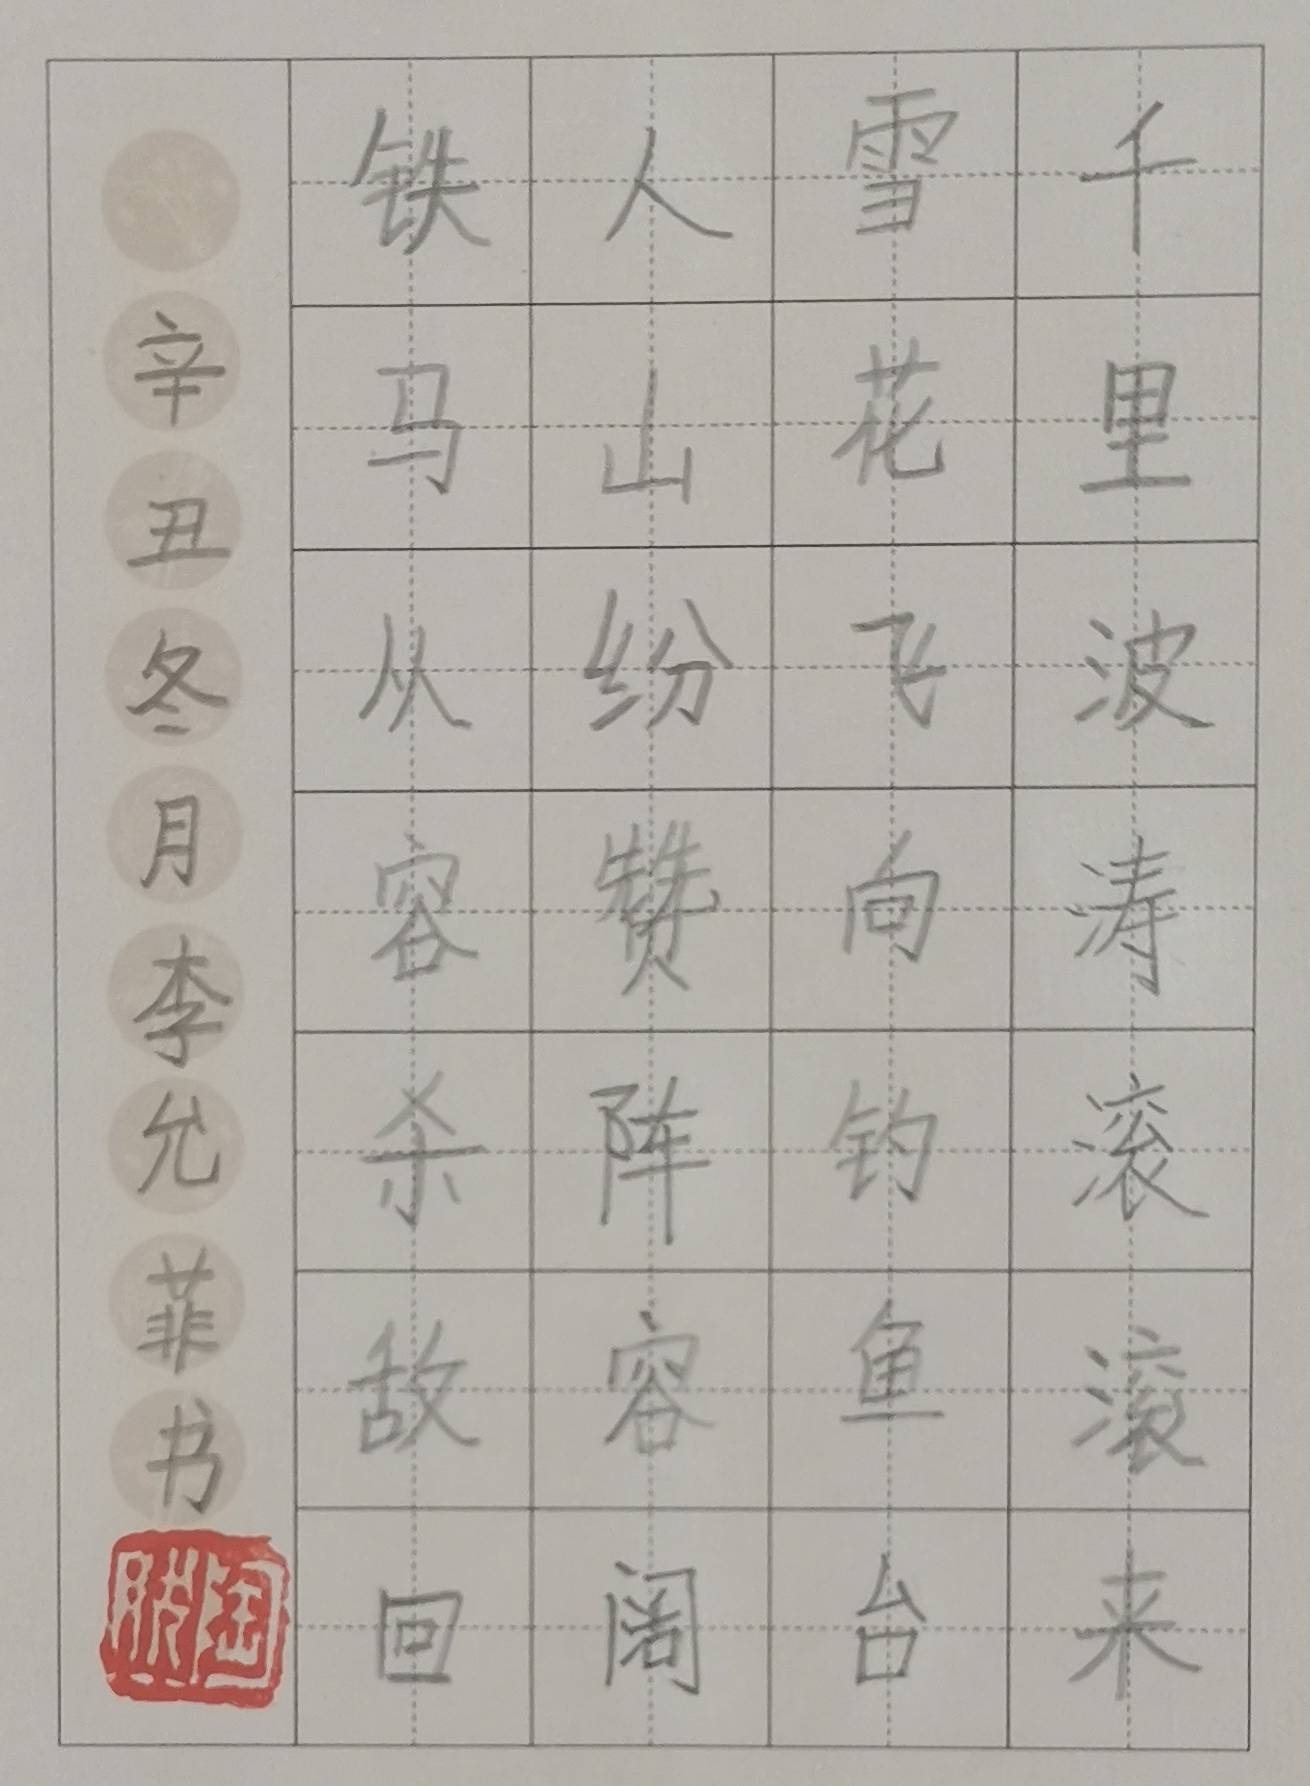 千里波涛滚滚来
雪花飞向钓鱼台
人山纷赞阵容阔
铁马从容杀敌回
辛丑冬月李允菲书